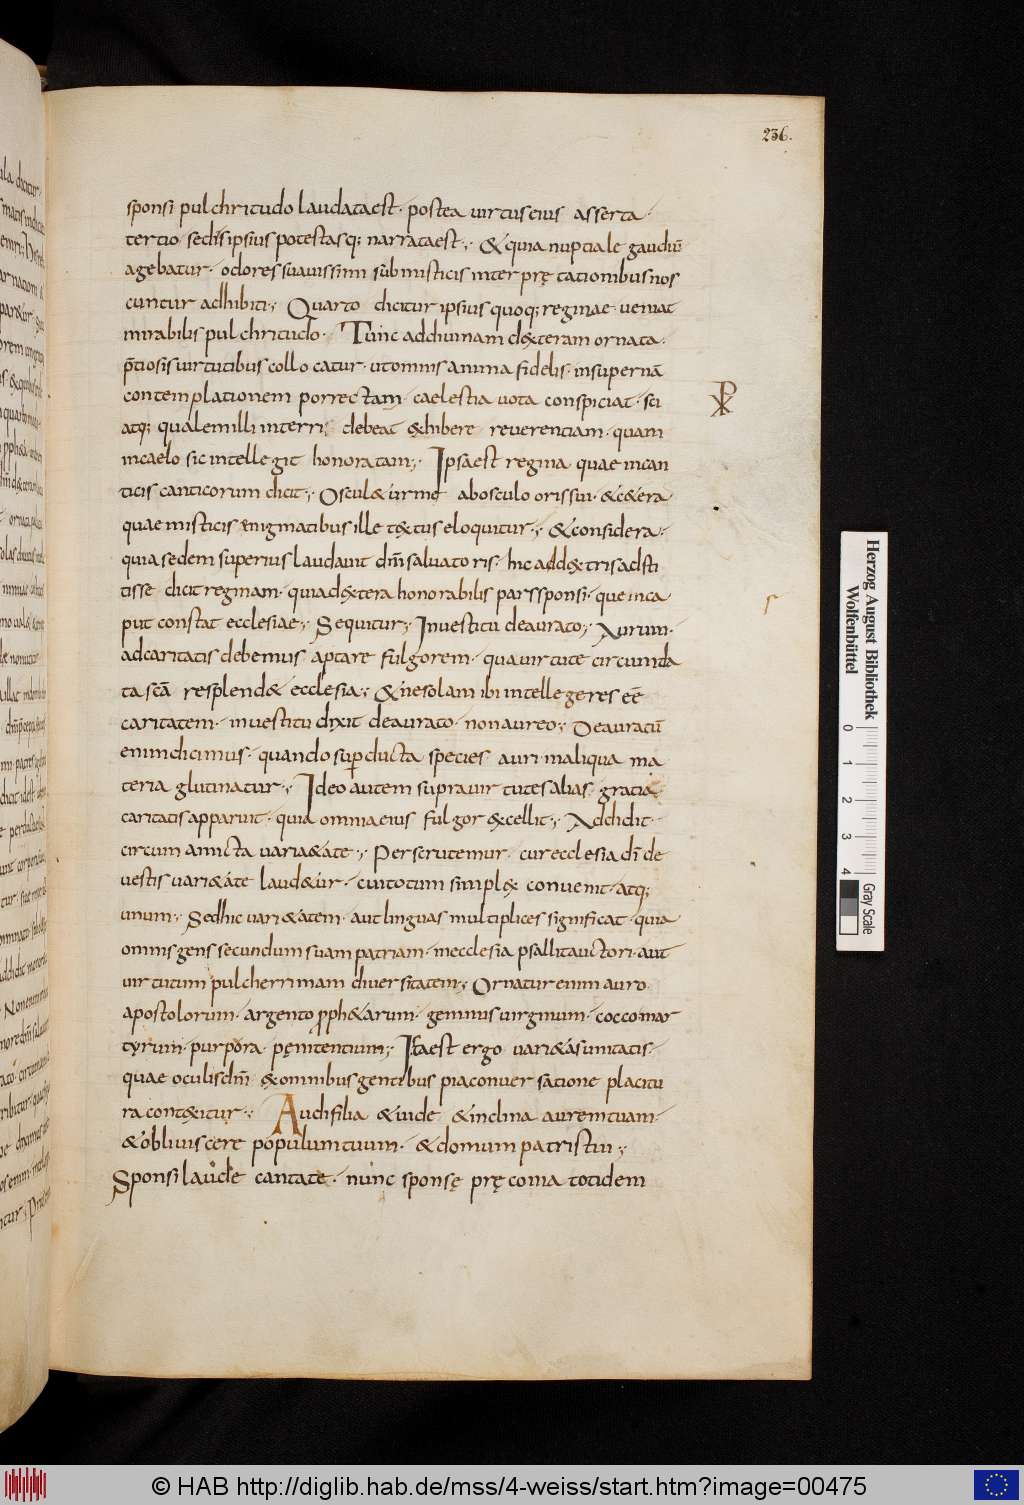 236.
sponsi pulchritudo laudata est· postea uirtus eius asserta·
tertio sedis ipsius potestasq; narrata est;· & quia nuptiale gaudiū
agebatur· odores suauissimi sub misticis interprętationibus nos
cuntur adhibiti;· Quarto dicitur ipsius quoq; reginae· ueniat
mirabilis pulchritudo· Tunc ad diuinam dexteram ornata·
p̄tiosis uirtutibus collocatur· ut omnis anima fidelis· in supernā
contemplationem porrectam· caelestia uota conspiciat· sci
atq; qualem illi in terris debeat exhibere reuerentiam· quam
in caelo sic intellegit honoratam;· Ipsa est regina quae in can
ticis canticorum dicit;· Oscul&ur me ab osculo oris sui· & c&era
quae misticis enigmatibus ille textus eloquitur;· & considera·
quia sedem superius laudauit dn̄i saluatoris· hic ad dextris adsti
tisse dicit reginam· quia dextera honorabilis pars sponsi· que in ca
put constat ecclesiae;· Sequitur;· In uestitu deaurato;· Aurum·
ad caritatis debemus aptare fulgorem· qua uirtute circumda
ta scā resplend& ecclesia;· & ne solam ibi intellegeres eē
caritatem· in uestitu dixit deaurato· non aureo;· Deauratū
enim dicimus· quando sup̄ducta species auri in aliqua ma
teria glutinatur;· Ideo autem supra uirtutes alias· gratia
caritatis apparuit· quia omnia eius fulgor excellit;· Addidit·
circumamicta uari&ate;· Perscrutemur· cur ecclesia dī de
uestis uari&ate laud&ur· cui totum simplex conuenit· atq;
unum;· Sed hic uari&atem· aut linguas multiplices significat· quia
omnis gens secundum suam patriam· in ecclesia psallit auctori· aut
uirtutum pulcherrimam diuersitatem;· Ornatur enim auro
apostolorum· argento proph&arum· gemmis uirginum· cocco mar
tyrum· purpora pęnitentium;· Ista est ergo uari&as unitatis·
quae oculis dn̄i ex omnibus gentibus pia conuersatione placitu
ra contexitur;· Audi filia & uide & inclina aurem tuam·
& obliuiscere populum tuum· & domum patris tui;·
Sponsi laude cantate· nunc sponsę pręconia totidem
Herzog August Bibliothek
Wolfenbüttel
0 1 2 3 4
Gray Scale
© HAB http://diglib.hab.de/mss/4-weiss/start.htm?image=00475